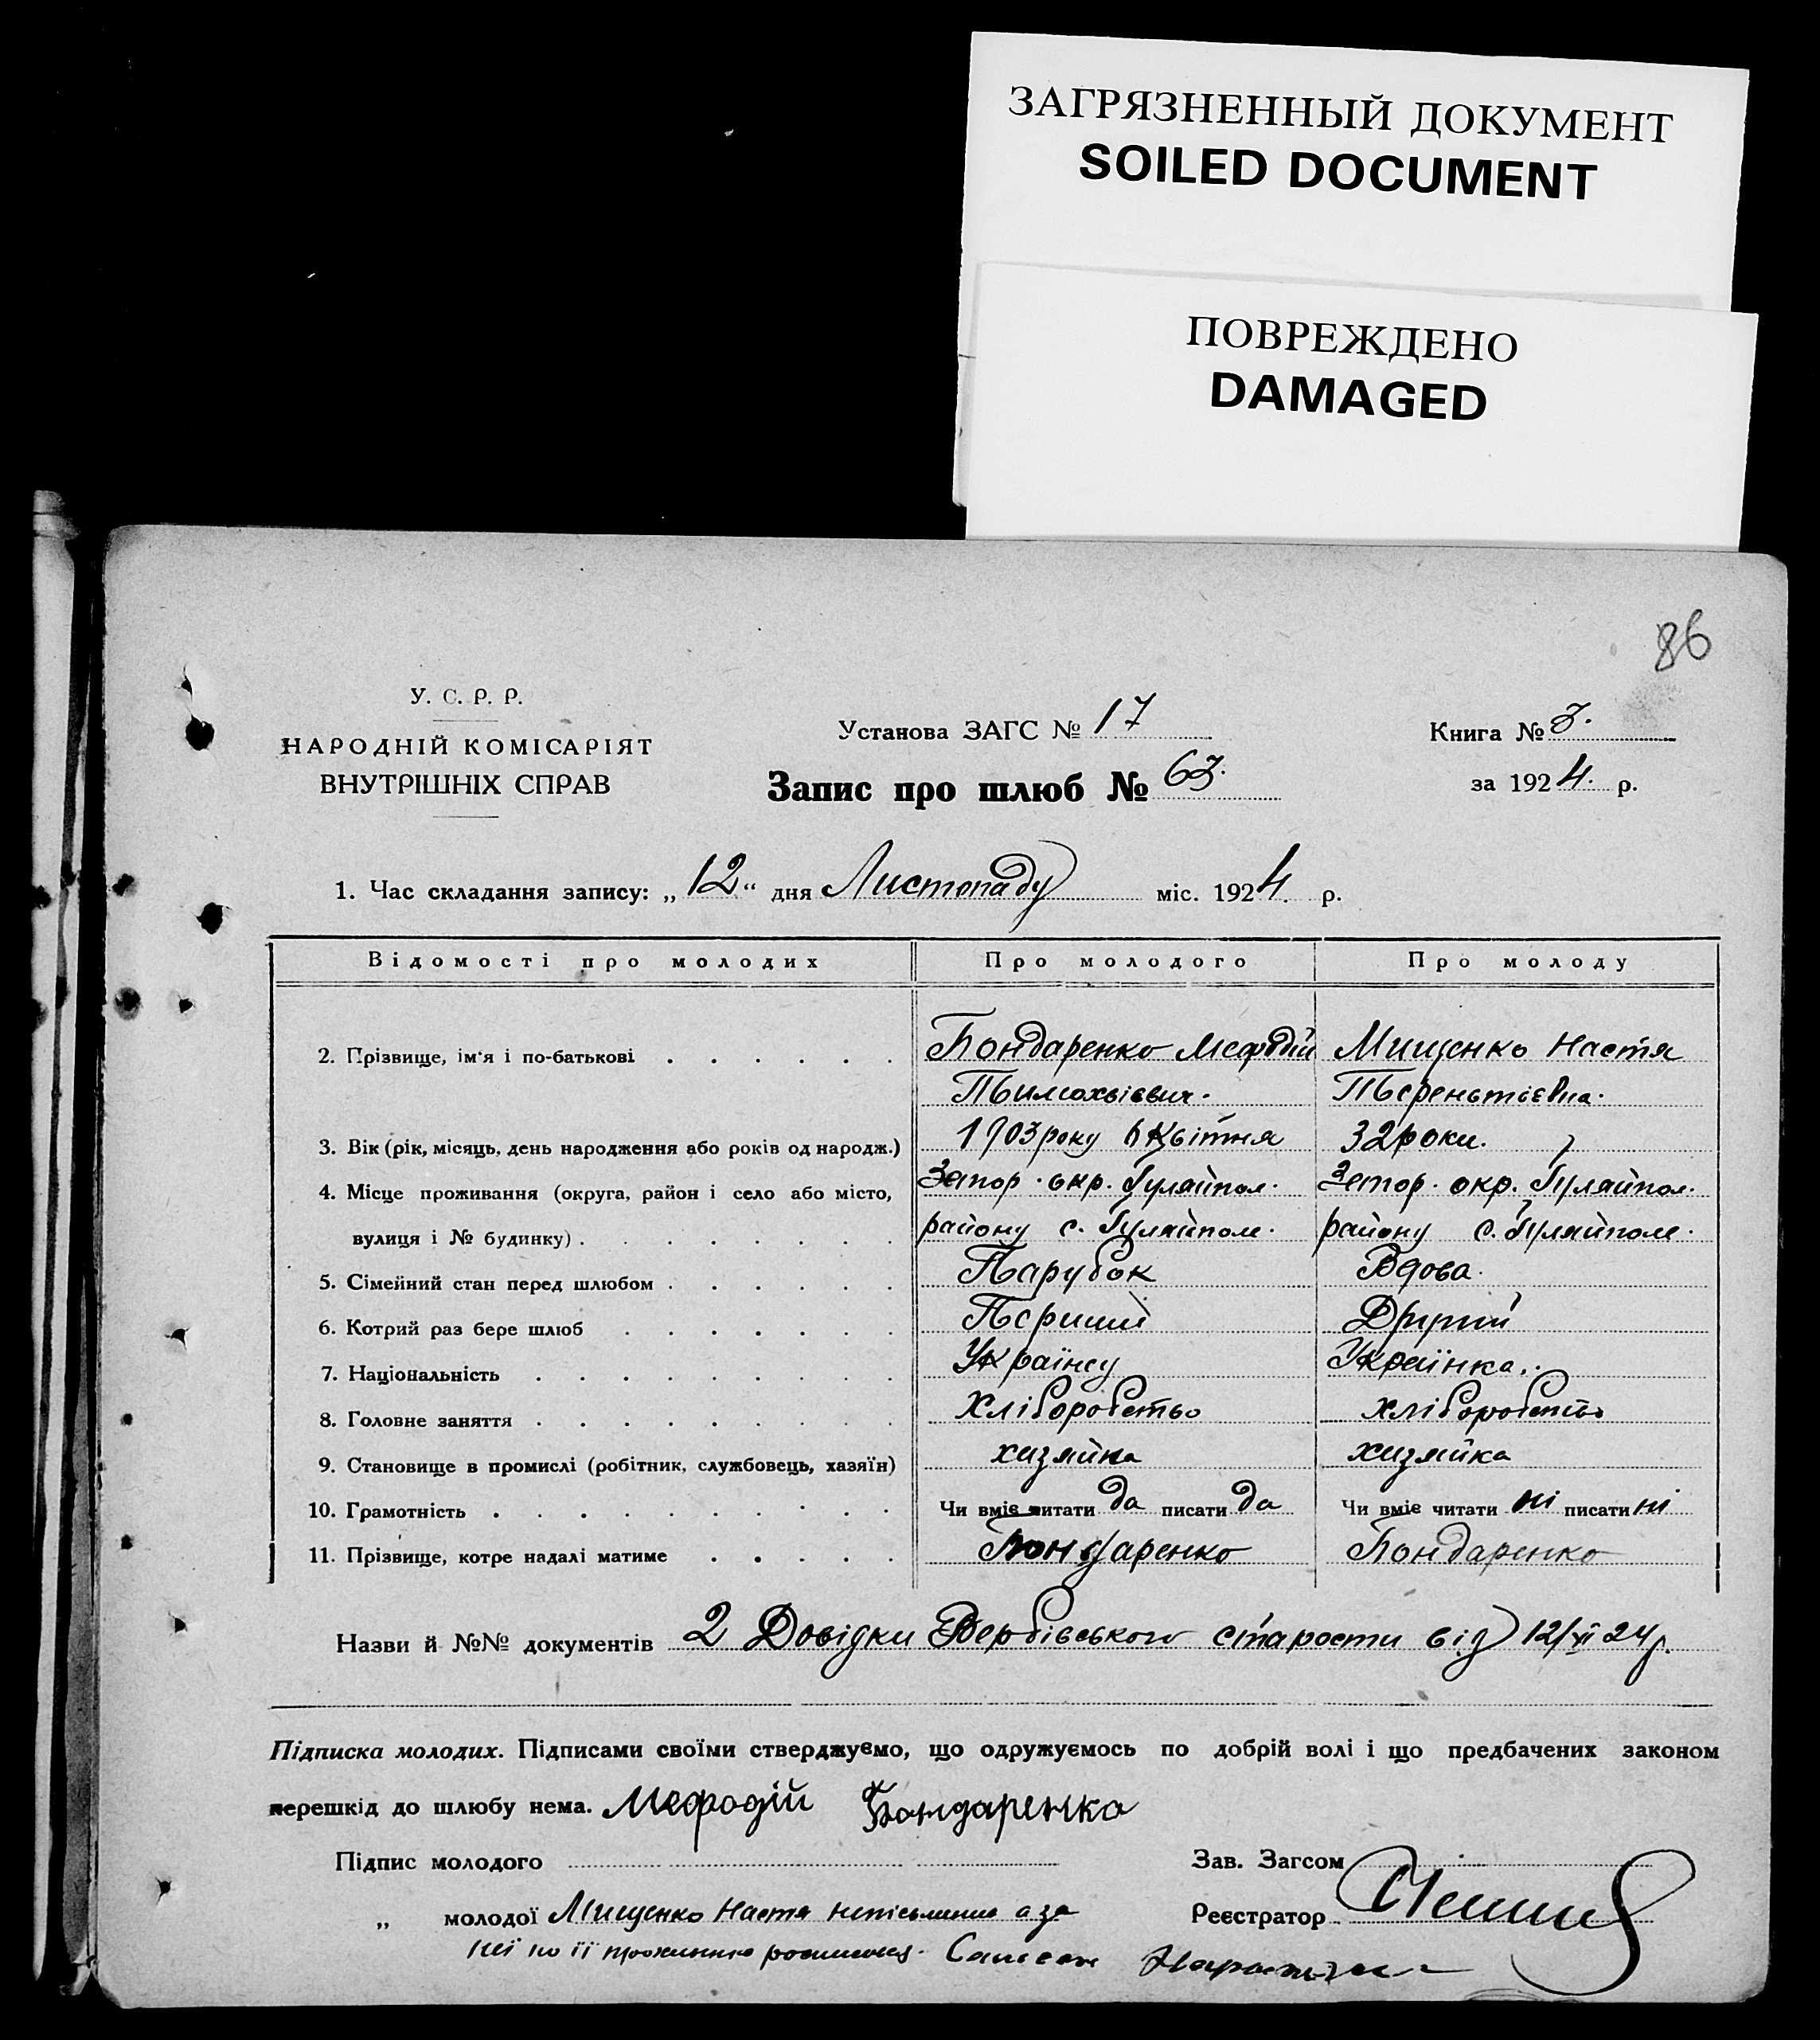 ЗАГРЯЗНЕННЫЙ ДОКУМЕНТ
SOILED DOCUMENT
ПОВРЕЖДЕНО
DAMAGED
86
У. С. Р. Р.
НАРОДНІЙ КОМІСАРІЯТ
ВНУТРІШНІХ СПРАВ
Установа ЗАГС № 17
Запис про шлюб № 63.
Книга № 3.
за 1924. р.
1. Час складання запису: „12“ дня Листопаду міс. 1924. р.
Відомості про молодих Про молодого Про молоду
2. Прізвище, ім'я і по-батькові Бондаренко Мефодій Мищенко Настя
Тимохвієвич. Тереньтієвна.
3. Вік (рік, місяць, день народження або років од народж.) 1903 року 6 Квітня 32 роки.
4. Місце проживання (округа, район і село або місто, Запор. окр. Гуляйпол. Запор. окр. Гуляйпол.
вулиця і № будинку) району с. Гуляйполе. району с. Гуляйполе.
5. Сімейний стан перед шлюбом Парубок Вдова.
6. Котрий раз бере шлюб Перший Другий
7. Національність Українец Українка.
8. Головне заняття Хліборобство хліборобство
9. Становище в промислі (робітник, службовець, хазяїн) хазяйка хазяйка
10. Грамотність Чи вміє читати да писати да Чи вміє читати ні писати ні
11. Прізвище, котре надалі матиме Бондаренко Бондаренко
Назви й №№ документів 2 Довідки Вербівського старости від 12/XI 24 р.
Підписка молодих. Підписами своїми стверджуємо, що одружуємось по добрій волі і що предбачених законом
перешкід до шлюбу нема. Мефодій Бондаренко
Підпис молодого Зав. Загсом
„ молодої Мищенко Настя неписьменна а за Реєстратор
неї по її проханню росписався.